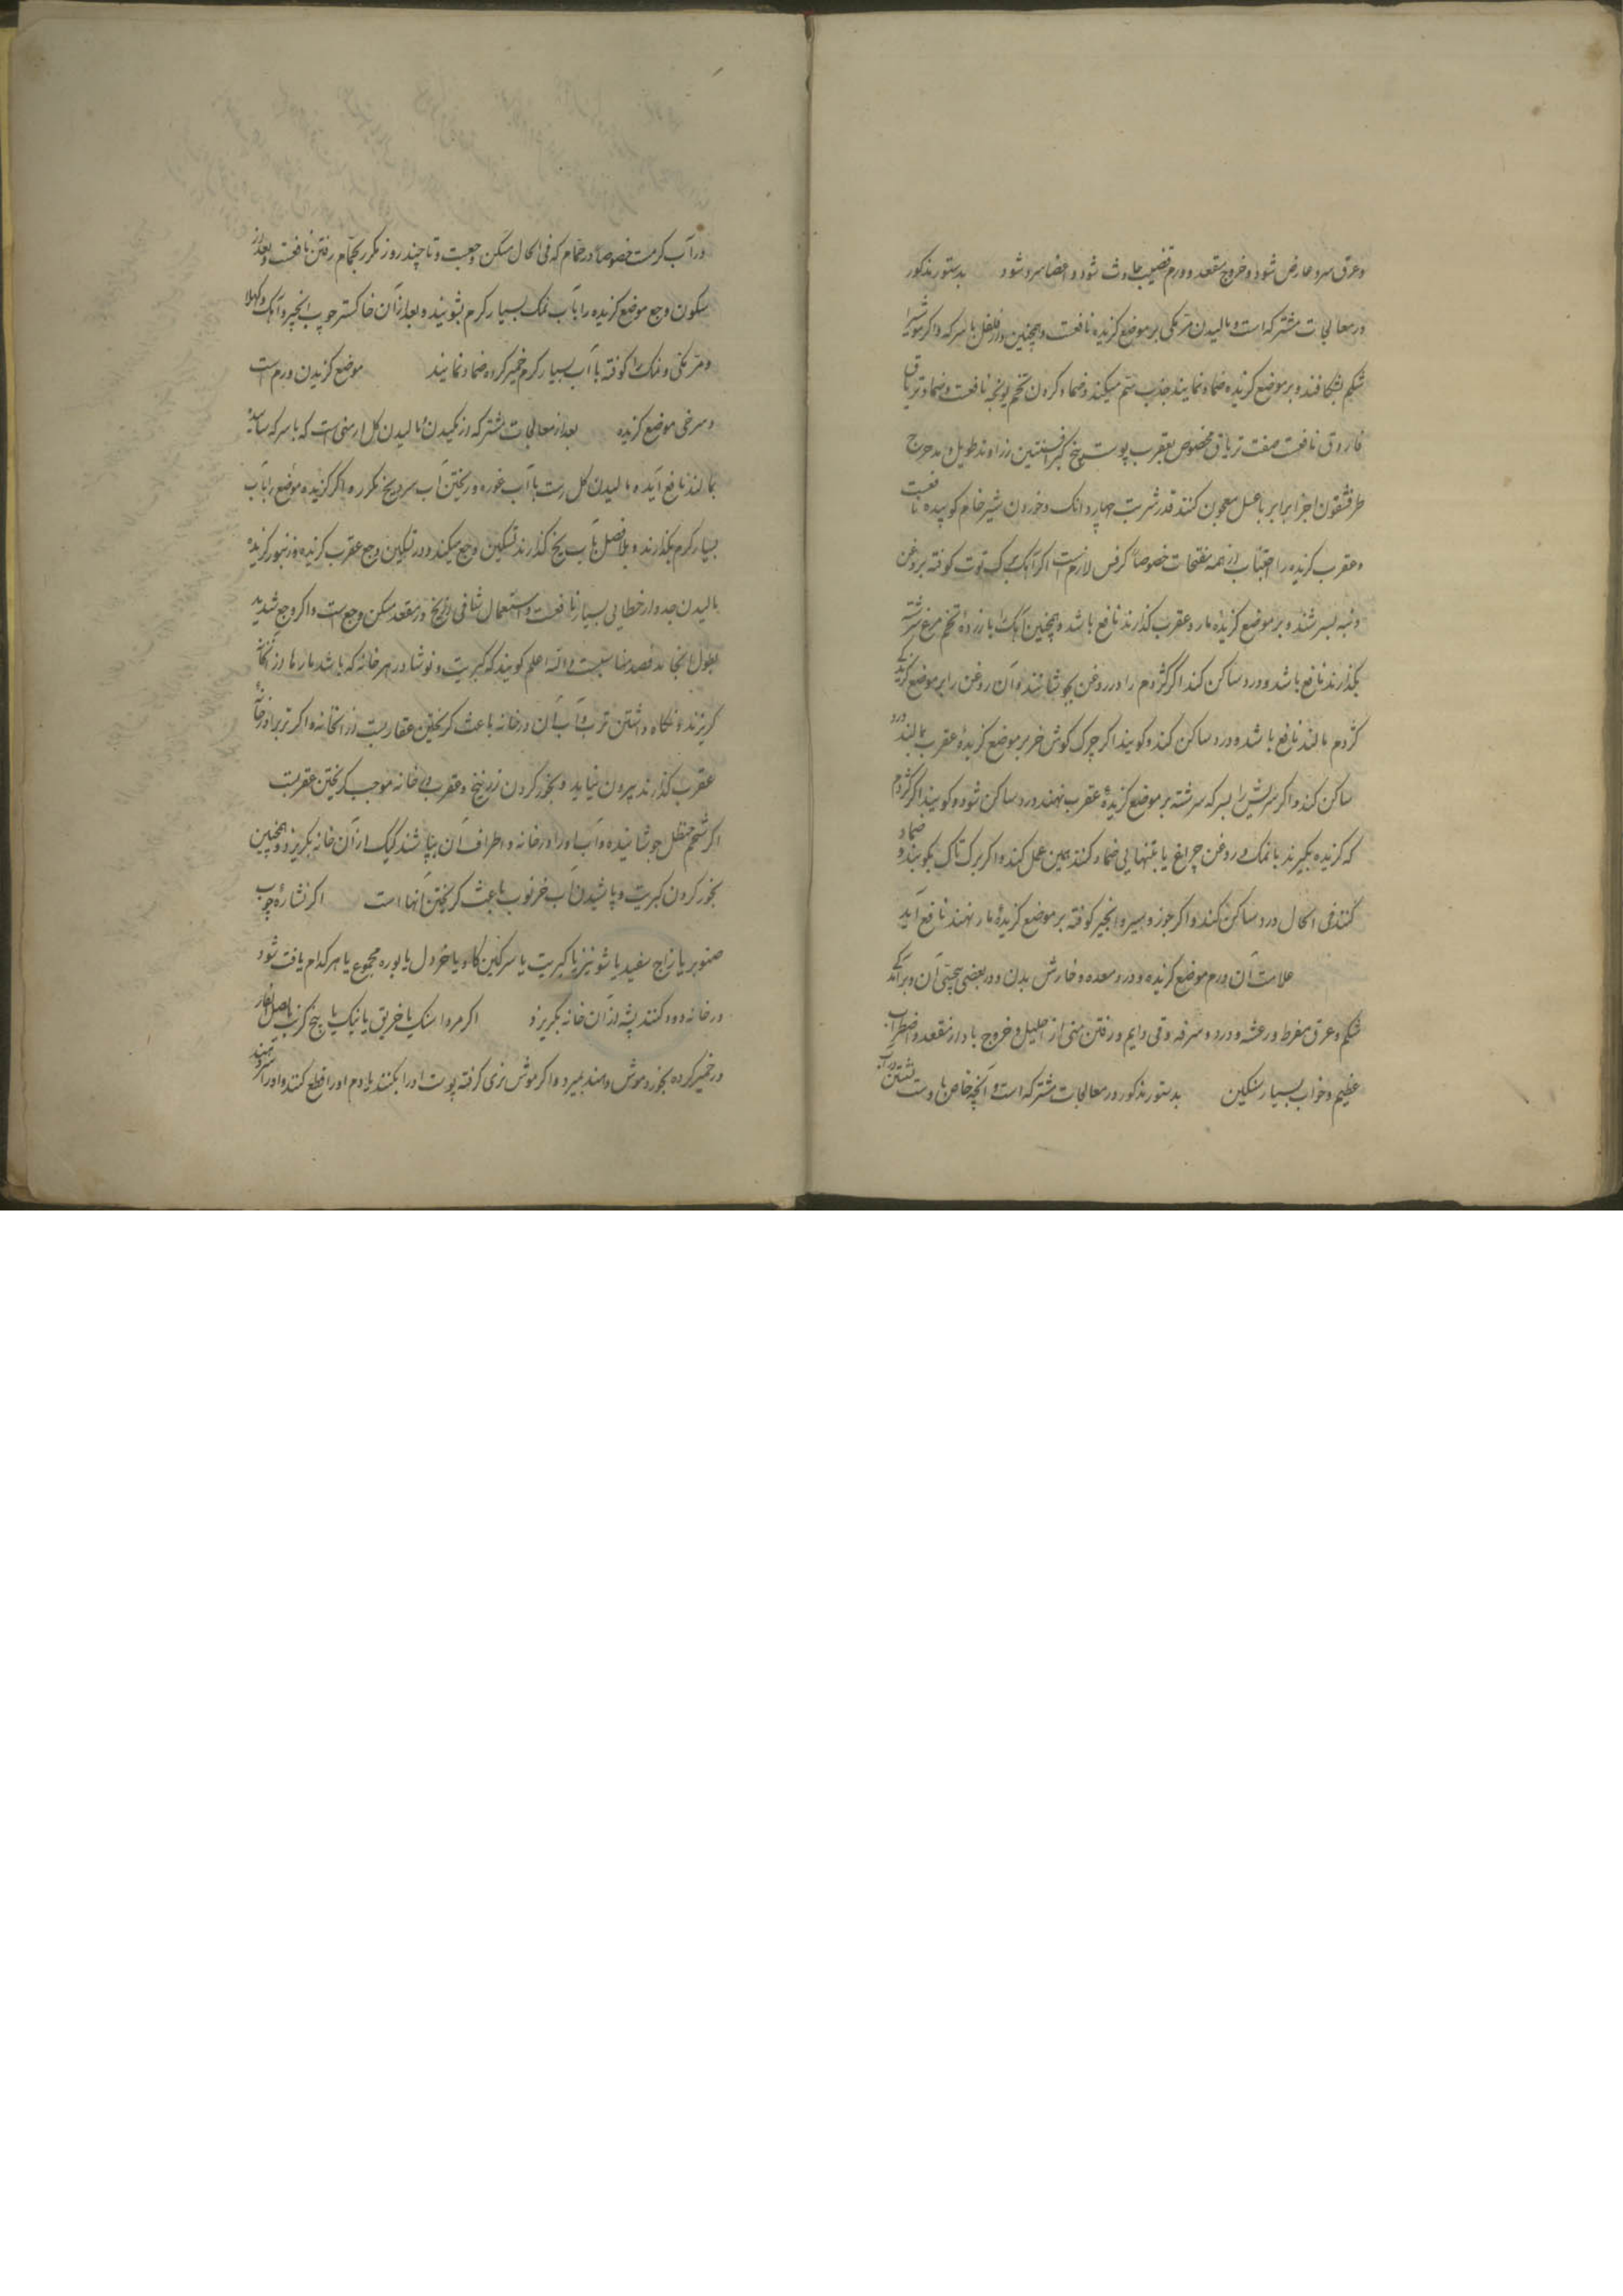 وعرق سرد عارض شود و خروج مقعد و ورم قضیب حادث شود و اعضا سرد شود بدستور مذکور
در معالجات مشترکه است و مالیدن مرمکی بر موضع کزیده نافعست و همچنین دارفلفل با سرکه و اکر موش را
شکم بشکافند و بر موضع کزیده ضماد نمایند جذب سم میکند و ضماد کردن تخم یونجه نافعست و ضماد تریاق
فاروق نافعست صفت تریاق مخصوص بعقرب پوست بیخ کبر افسنتین زراوند طویل و مدحرج
طرخشقون اجزا برابر با عسل معجون کنند قدر شربت چهار دانک و خوردن شیر خام کوبیده نافعست
و عقرب کزیده را اجتناب از همه مفتحات خصوصاً کرفس لازم است اکر آهک برک توت کوفته بروغن
دنبه بسرشند و بر موضع کزیدهٔ مار و عقرب کذارند نافع باشد و همچنین آهک با زردهٔ تخم مرغ سرشته
بکذارند نافع باشد و درد ساکن کند اکر کژدم را در روغن بجوشانند و آن روغن را بر موضع کزیدکی
کژدم مالند نافع باشد و درد ساکن کند و کویند اکر چرک کوش خر بر موضع کزیدهٔ عقرب بمالند درد
ساکن کند و اکر سریش را بسرکه سرشته بر موضع کزیدهٔ عقرب نهند درد ساکن شود و کویند اکر کژدم
که کزیده بکیرند با نمک و روغن چراغ یا بتنهایی ضماد کنند همین عمل کند و اکر برک تاک بکوبند و ضماد
کنند فی الحال درد ساکن کند و اکر جوز و سیر و انجیر کوفته بر موضع کزیدهٔ مار نهند نافع آید
علامت آن ورم موضع کزیده و درد معده و خارش بدن و در بعضی پیچش آن و برآمدن
شکم و عرق مفرط و رعشه و درد و سرفه و قی دایم و رفتن منی از احلیل و خروج باد از مقعد و اضطراب
عظیم و خواب بسیار سنکین بدستور مذکور در معالجات مشترکه است و آنچه خاص باوست نشستن در آب
در آب کرمست خصوصاً در حمام که فی الحال مسکن وجعست و تا چند روز مکرر بحمام رفتن نافعست و بعد از
سکون وجع موضع کزیده را بآب نمک بسیار کرم بشویند و بعد از آن خاکستر چوب انجیر و آهک
و مرمکی و نمک را کوفته با آب بسیار کرم خمیر کرده ضماد نمایند موضع کزیدن ورم است
و سرخی موضع کزیده بعد از معالجات مشترکه از مکیدن و مالیدن کل ارمنی است که با سرکه
بمالند نافع آید و مالیدن کل است با آب غوره و ریختن آب سرد و یخ مکرر و اکر کزیده موضع را بآب
بسیار کرم بکذارند و بلافصل بآب یخ کذارند تسکین وجع میکند و در تسکین وجع عقرب کزیده و زنبور کزیده
مالیدن جدوار خطایی بسیار نافعست و استعمال شافی از یخ در مقعد مسکن وجع است و اکر وجع شدید
بطول انجامد فصد مناسبست والله اعلم کویند که کبریت و نوشادر در هر خانه که باشد مارها از آنجا
کریزند و نکاه داشتن ترب و آب آن در خانه باعث کریختن عقاربست از انخانه و اکر ترب را در خانهٔ
عقرب کذارند بیرون نیاید و بخور کردن زرنیخ و عقرب در خانه موجب کریختن عقربست
اکر شحم حنظل جوشانیده و آب او را در خانه و اطراف آن بپاشند کیک از آن خانه بکریزد و همچنین
بخور کردن کبریت و پاشیدن آب خرنوب باعث کریختن آنها است اکر نشارهٔ چوب
صنوبر یا زاج سفید یا شونیز یا کبریت یا سرکین کاو یا خردل یا بوره مجموع یا هر کدام یافت شود
در خانه دود کنند پشه از آن خانه بکریزد اکر مرداسنک یا خربق یا بیخ کرنب یا بصل الفار
در خمیر کرده بخورد موش دهند بمیرد و اکر موش نری کرفته پوست او را بکنند یا دم او را قطع کنند و او را سر دهند